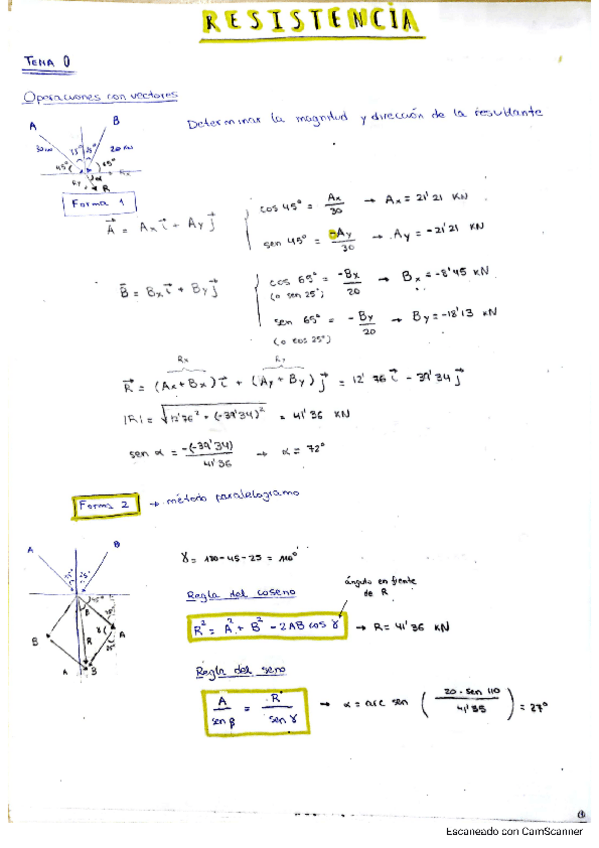 RESISTENCIA
TEMA 0
Operaciones con vectores
Determinar la magnitud y dirección de la resultante
A B
30 KN 25° 20 KN
45° 65°
α Rx
Ry R
Forma 1
A⃗ = Ax i⃗ + Ay j⃗
cos 45° = Ax/30 → Ax = 21'21 KN
sen 45° = -Ay/30 → Ay = -21'21 KN
B⃗ = Bx i⃗ + By j⃗
cos 65° = -Bx/20 → Bx = -8'45 KN
(o sen 25°)
sen 65° = -By/20 → By = -18'13 KN
(o cos 25°)
Rx Ry
R⃗ = (Ax+Bx) i⃗ + (Ay+By) j⃗ = 12'76 i⃗ - 39'34 j⃗
|R| = √12'76² + (-39'34)² = 41'36 KN
sen α = -(-39'34)/41'36 → α = 72°
Forma 2 → método paralelogramo
A B
25°
45°
β
B R γ A
25°
A B
γ = 180-45-25 = 110°
Regla del coseno
ángulo en frente
de R
R² = A² + B² - 2AB cos γ → R = 41'36 KN
Regla del seno
A/sen β = R/sen γ → α = arc sen (20 · sen 110/41'35) = 27°
①
Escaneado con CamScanner